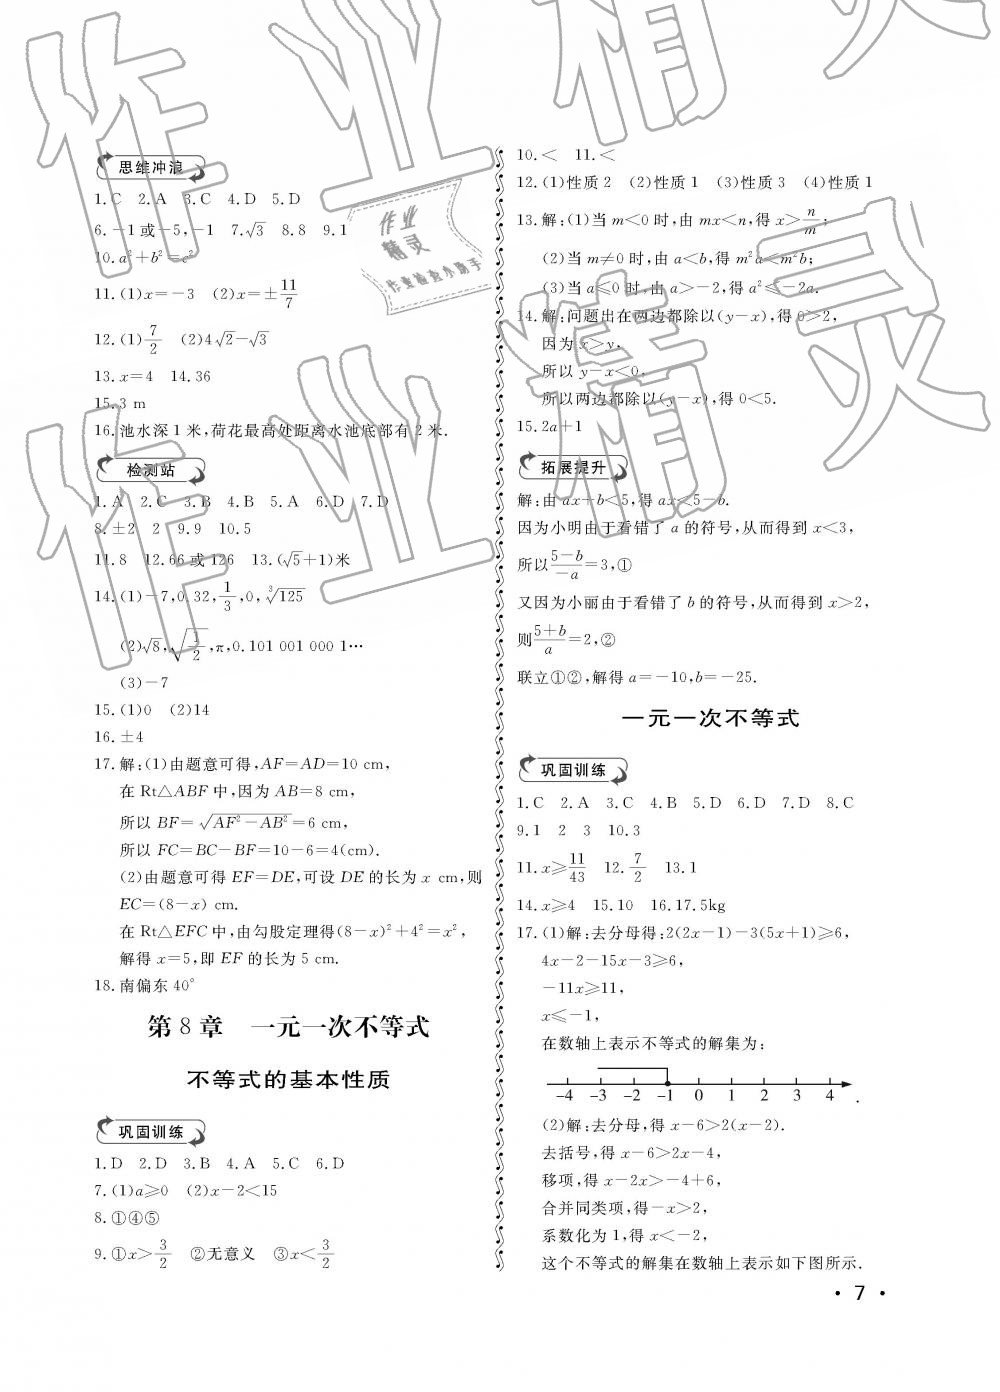 思维冲浪
1.C 2.A 3.C 4.D 5.D
6.-1或-5,-1 7.√3 8.8 9.1
10.a²+b²=c²
11.(1)x=-3 (2)x=±11/7
12.(1)7/2 (2)4√2-√3
13.x=4 14.36
15.3 m
16.池水深1米,荷花最高处距离水池底部有2米.
检测站
1.A 2.C 3.B 4.B 5.A 6.D 7.D
8.±2 2 9.9 10.5
11.8 12.66或126 13.(√5+1)米
14.(1)-7,0.32,1/3,0,∛125
(2)√8,√(1/2),π,0.101 001 000 1…
(3)-7
15.(1)0 (2)14
16.±4
17.解:(1)由题意可得,AF=AD=10 cm,
在Rt△ABF中,因为AB=8 cm,
所以BF=√(AF²-AB²)=6 cm,
所以FC=BC-BF=10-6=4(cm).
(2)由题意可得EF=DE,可设DE的长为x cm,则
EC=(8-x) cm.
在Rt△EFC中,由勾股定理得(8-x)²+4²=x²,
解得x=5,即EF的长为5 cm.
18.南偏东40°
第8章 一元一次不等式
不等式的基本性质
巩固训练
1.D 2.D 3.B 4.A 5.C 6.D
7.(1)a≥0 (2)x-2<15
8.①④⑤
9.①x>3/2 ②无意义 ③x<3/2
10.< 11.<
12.(1)性质2 (2)性质1 (3)性质3 (4)性质1
13.解:(1)当m<0时,由mx<n,得x>n/m;
(2)当m≠0时,由a<b,得m²a<m²b;
(3)当a≤0时,由a>-2,得a²≤-2a.
14.解:问题出在两边都除以(y-x),得0>2,
因为x>y,
所以y-x<0,
所以两边都除以(y-x),得0<5.
15.2a+1
拓展提升
解:由ax+b<5,得ax<5-b.
因为小明由于看错了a的符号,从而得到x<3,
所以5-b/-a=3,①
又因为小丽由于看错了b的符号,从而得到x>2,
则5+b/a=2,②
联立①②,解得a=-10,b=-25.
一元一次不等式
巩固训练
1.C 2.A 3.C 4.B 5.D 6.D 7.D 8.C
9.1 2 3 10.3
11.x≥11/43 12.7/2 13.1
14.x≥4 15.10 16.17.5kg
17.(1)解:去分母得:2(2x-1)-3(5x+1)≥6,
4x-2-15x-3≥6,
-11x≥11,
x≤-1,
在数轴上表示不等式的解集为:
-4 -3 -2 -1 0 1 2 3 4 .
(2)解:去分母,得x-6>2(x-2).
去括号,得x-6>2x-4,
移项,得x-2x>-4+6,
合并同类项,得-x>2,
系数化为1,得x<-2,
这个不等式的解集在数轴上表示如下图所示.
· 7 ·
作业精灵
作业
精灵
作业检查小助手
作业精灵
作业精灵